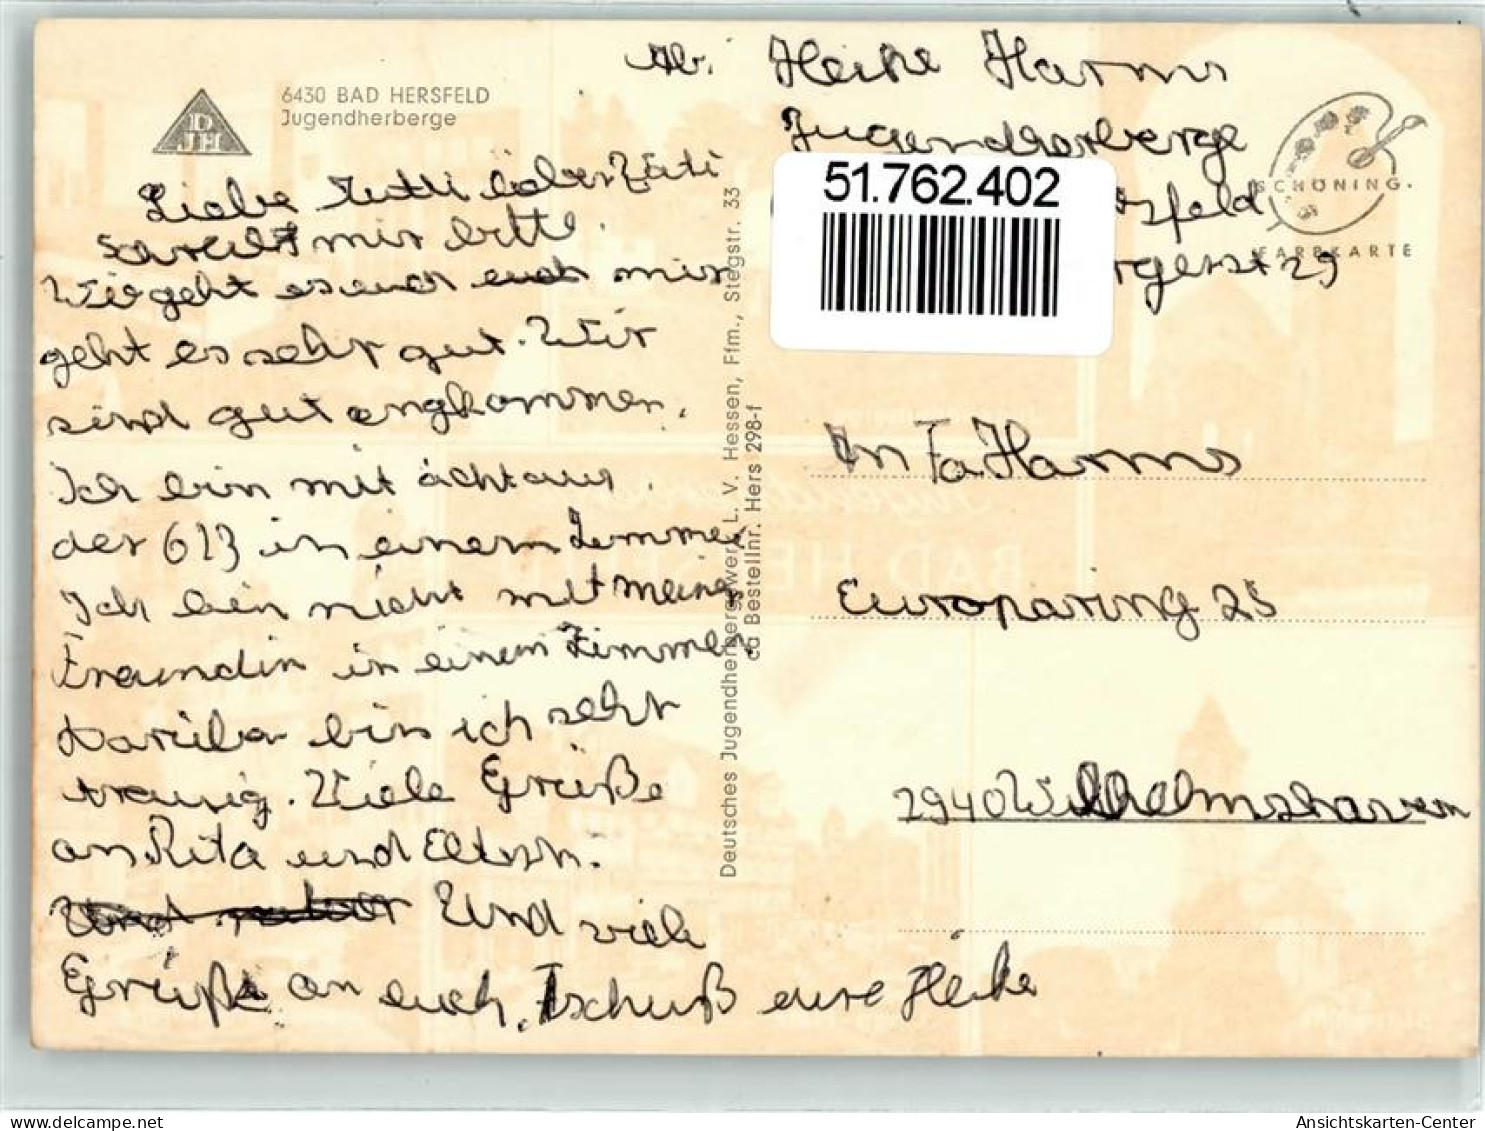 Ab. Heike Harms
Jugendherberge
sfeld
rgerst 29
6430 BAD HERSFELD
Jugendherberge
DJH
SCHÖNING.
FARBKARTE
51.762.402
Liebe Mutti lieber Vati
schreibt mir bitte.
Wie geht es euch mir
geht es sehr gut. Wir
sind gut angkommen.
Ich bin mit acht aus
der 6 in einem Zimmer
Ich bin nicht mit meiner
Fraundin in einem Zimmer.
Darüber bin ich sehr
traurig. Viele Grüße
an Rita und Eltern.
Und viele
Grüße an euch. Tschuß eure Heike
Deutsches Jugendherbergswerk L. V. Hessen, Ffm., Stegstr. 33
Bestellnr. Hers 298-f
An Fa. Harms
Europaring 25
2940 Wilhelmshaven
Ansichtskarten-Center